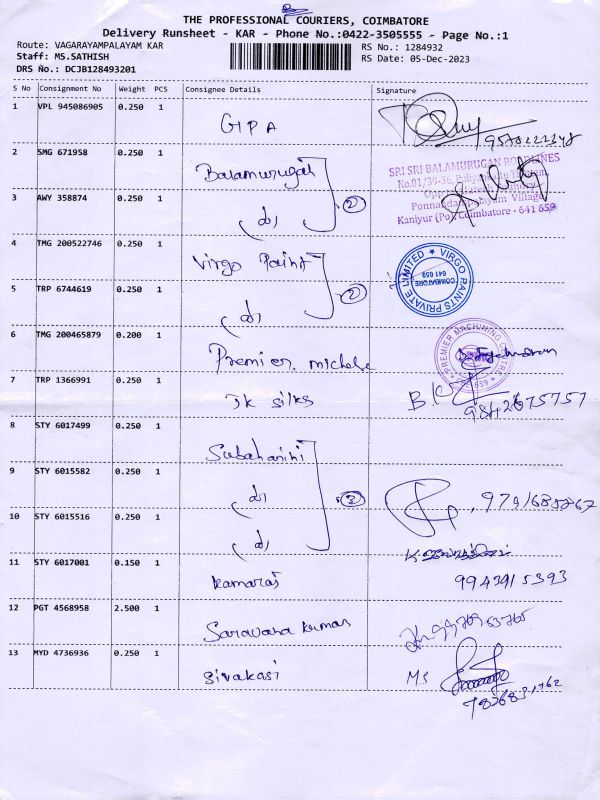 THE PROFESSIONAL COURIERS, COIMBATORE
Delivery Runsheet - KAR - Phone No.:0422-3505555 - Page No.:1
Route: VAGARAYAMPALAYAM KAR
RS No.: 1284932
Staff: MS.SATHISH
RS Date: 05-Dec-2023
DRS No.: DCJB128493201
S No Consignment No Weight PCS Consignee Details Signature
1 VPL 945086905 0.250 1 GIPA
2 SMG 671958 0.250 1 Balamurugan
SRI SRI BALAMURUGAN ROADLINES
No.01/39-36,
Kaniyur (Po), Coimbatore - 641 659
3 AWY 358874 0.250 1 (do) 2
4 TMG 200522746 0.250 1 Virgo Paint
VIRGO PAINTS PRIVATE LIMITED
COIMBATORE
641 659
5 TRP 6744619 0.250 1 (do) 2
6 TMG 200465879 0.200 1 Premier
PREMIER MACHINING CENTRE
7 TRP 1366991 0.250 1 Jk silks
9842675757
8 STY 6017499 0.250 1
9 STY 6015582 0.250 1 (do) 3
10 STY 6015516 0.250 1 (do)
11 STY 6017001 0.150 1 Kamaraj
9943915393
12 PGT 4568958 2.500 1 Saravana kumar
13 MYD 4736936 0.250 1 Sivakasi MS